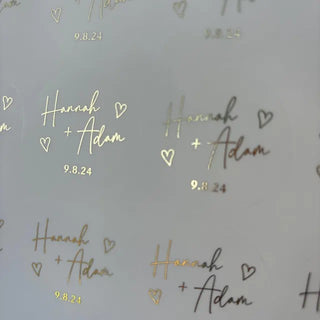 Adam
9.8.24
Adam
9.8.24
Hannah
+ Adam
9.8.24
Hannah
+ Adam
9.8.24
Hannah
+ Adam
9.8.24
Hannah
+ Adam